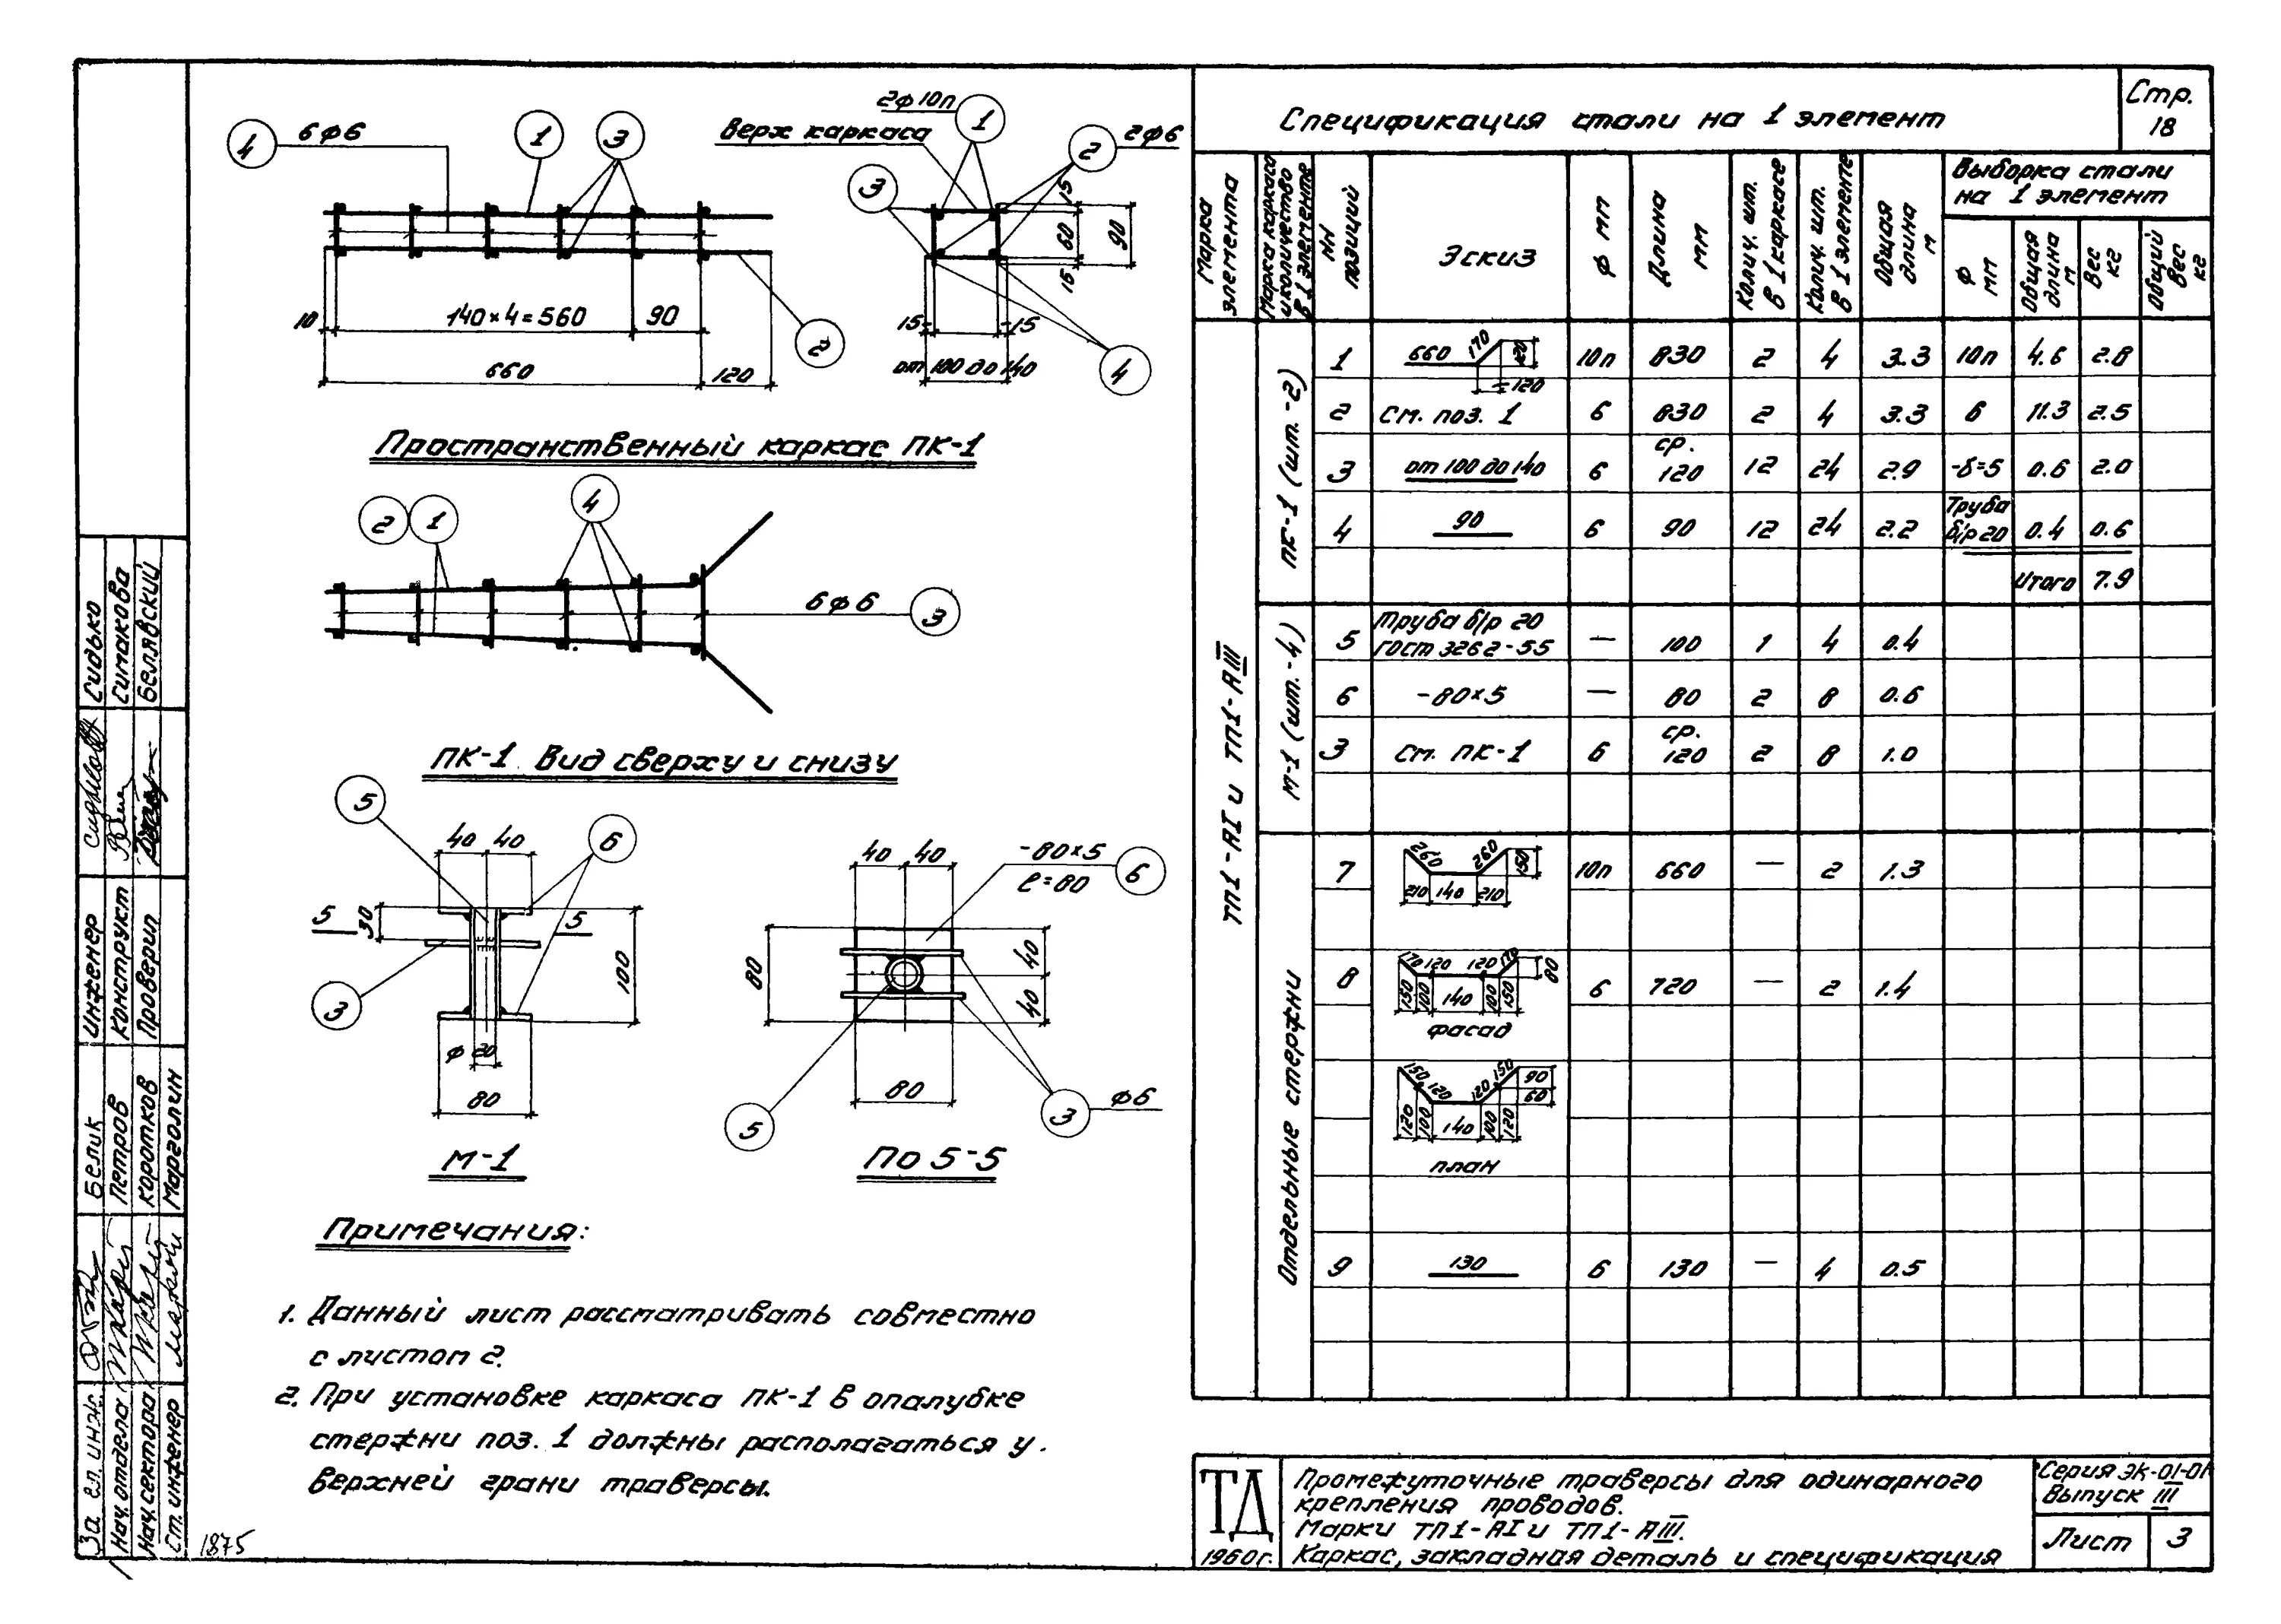 Стр.
18
Спецификация стали на 1 элемент
Марка элемента
Марка каркаса и количество в 1 элементе
NN позиций
Эскиз
Ф мм
Длина мм
Колич. шт. в 1 каркасе
Колич. шт. в 1 элементе
Общая длина м
Выборка стали
на 1 элемент
Ф мм
Общая длина м
Вес кг
Общий вес кг
ТП1-АI и ТП1-АIII
ПК-1 (шт.-2)
1 660 170 120 120 10п 830 2 4 3.3 10п 4.6 2.8
2 См. поз. 1 6 830 2 4 3.3 6 11.3 2.5
3 от 100 до 140 6 ср. 120 12 24 2.9 -δ=5 0.6 2.0
4 90 6 90 12 24 2.2 Труба б/р 20 0.4 0.6
Итого 7.9
М-1 (шт.-4)
5 Труба б/р 20 ГОСТ 3262-55 — 100 1 4 0.4
6 -80×5 — 80 2 8 0.6
3 См. ПК-1 6 ср. 120 2 8 1.0
Отдельные стержни
7 260 260 150 210 140 210 10п 660 — 2 1.3
8 170 120 120 170 80 150 100 140 100 150 6 720 — 2 1.4
фасад
150 120 120 150 90 60 120 100 140 100 120
план
9 130 6 130 — 4 0.5
4 6ф6 1 3
10 140×4=560 90
660 120
2
2ф10п 1
Верх каркаса
2 2ф6
3
15 60 15 90
15 15
от 100 до 140
4
Пространственный каркас ПК-1
2 1 4
6ф6 3
ПК-1. Вид сверху и снизу
5 6
40 40
5 30 5
100
3
ф 20
80
М-1
40 40
-80×5
ℓ=80
6
80 40 40
80
5 3 ф6
По 5-5
Примечания:
1. Данный лист рассматривать совместно
с листом 2.
2. При установке каркаса ПК-1 в опалубке
стержни поз. 1 должны располагаться у
верхней грани траверсы.
1875
За гл. инж. Белик
Нач. отдела Петров
Нач. сектора Коротков
Ст. инженер Марголин
Инженер Сидько
Конструкт Симакова
Проверил Белявский
ТД
1960г.
Промежуточные траверсы для одинарного
крепления проводов.
Марки ТП1-АI и ТП1-АIII.
Каркас, закладная деталь и спецификация
Серия ЭК-01-01
Выпуск III
Лист 3